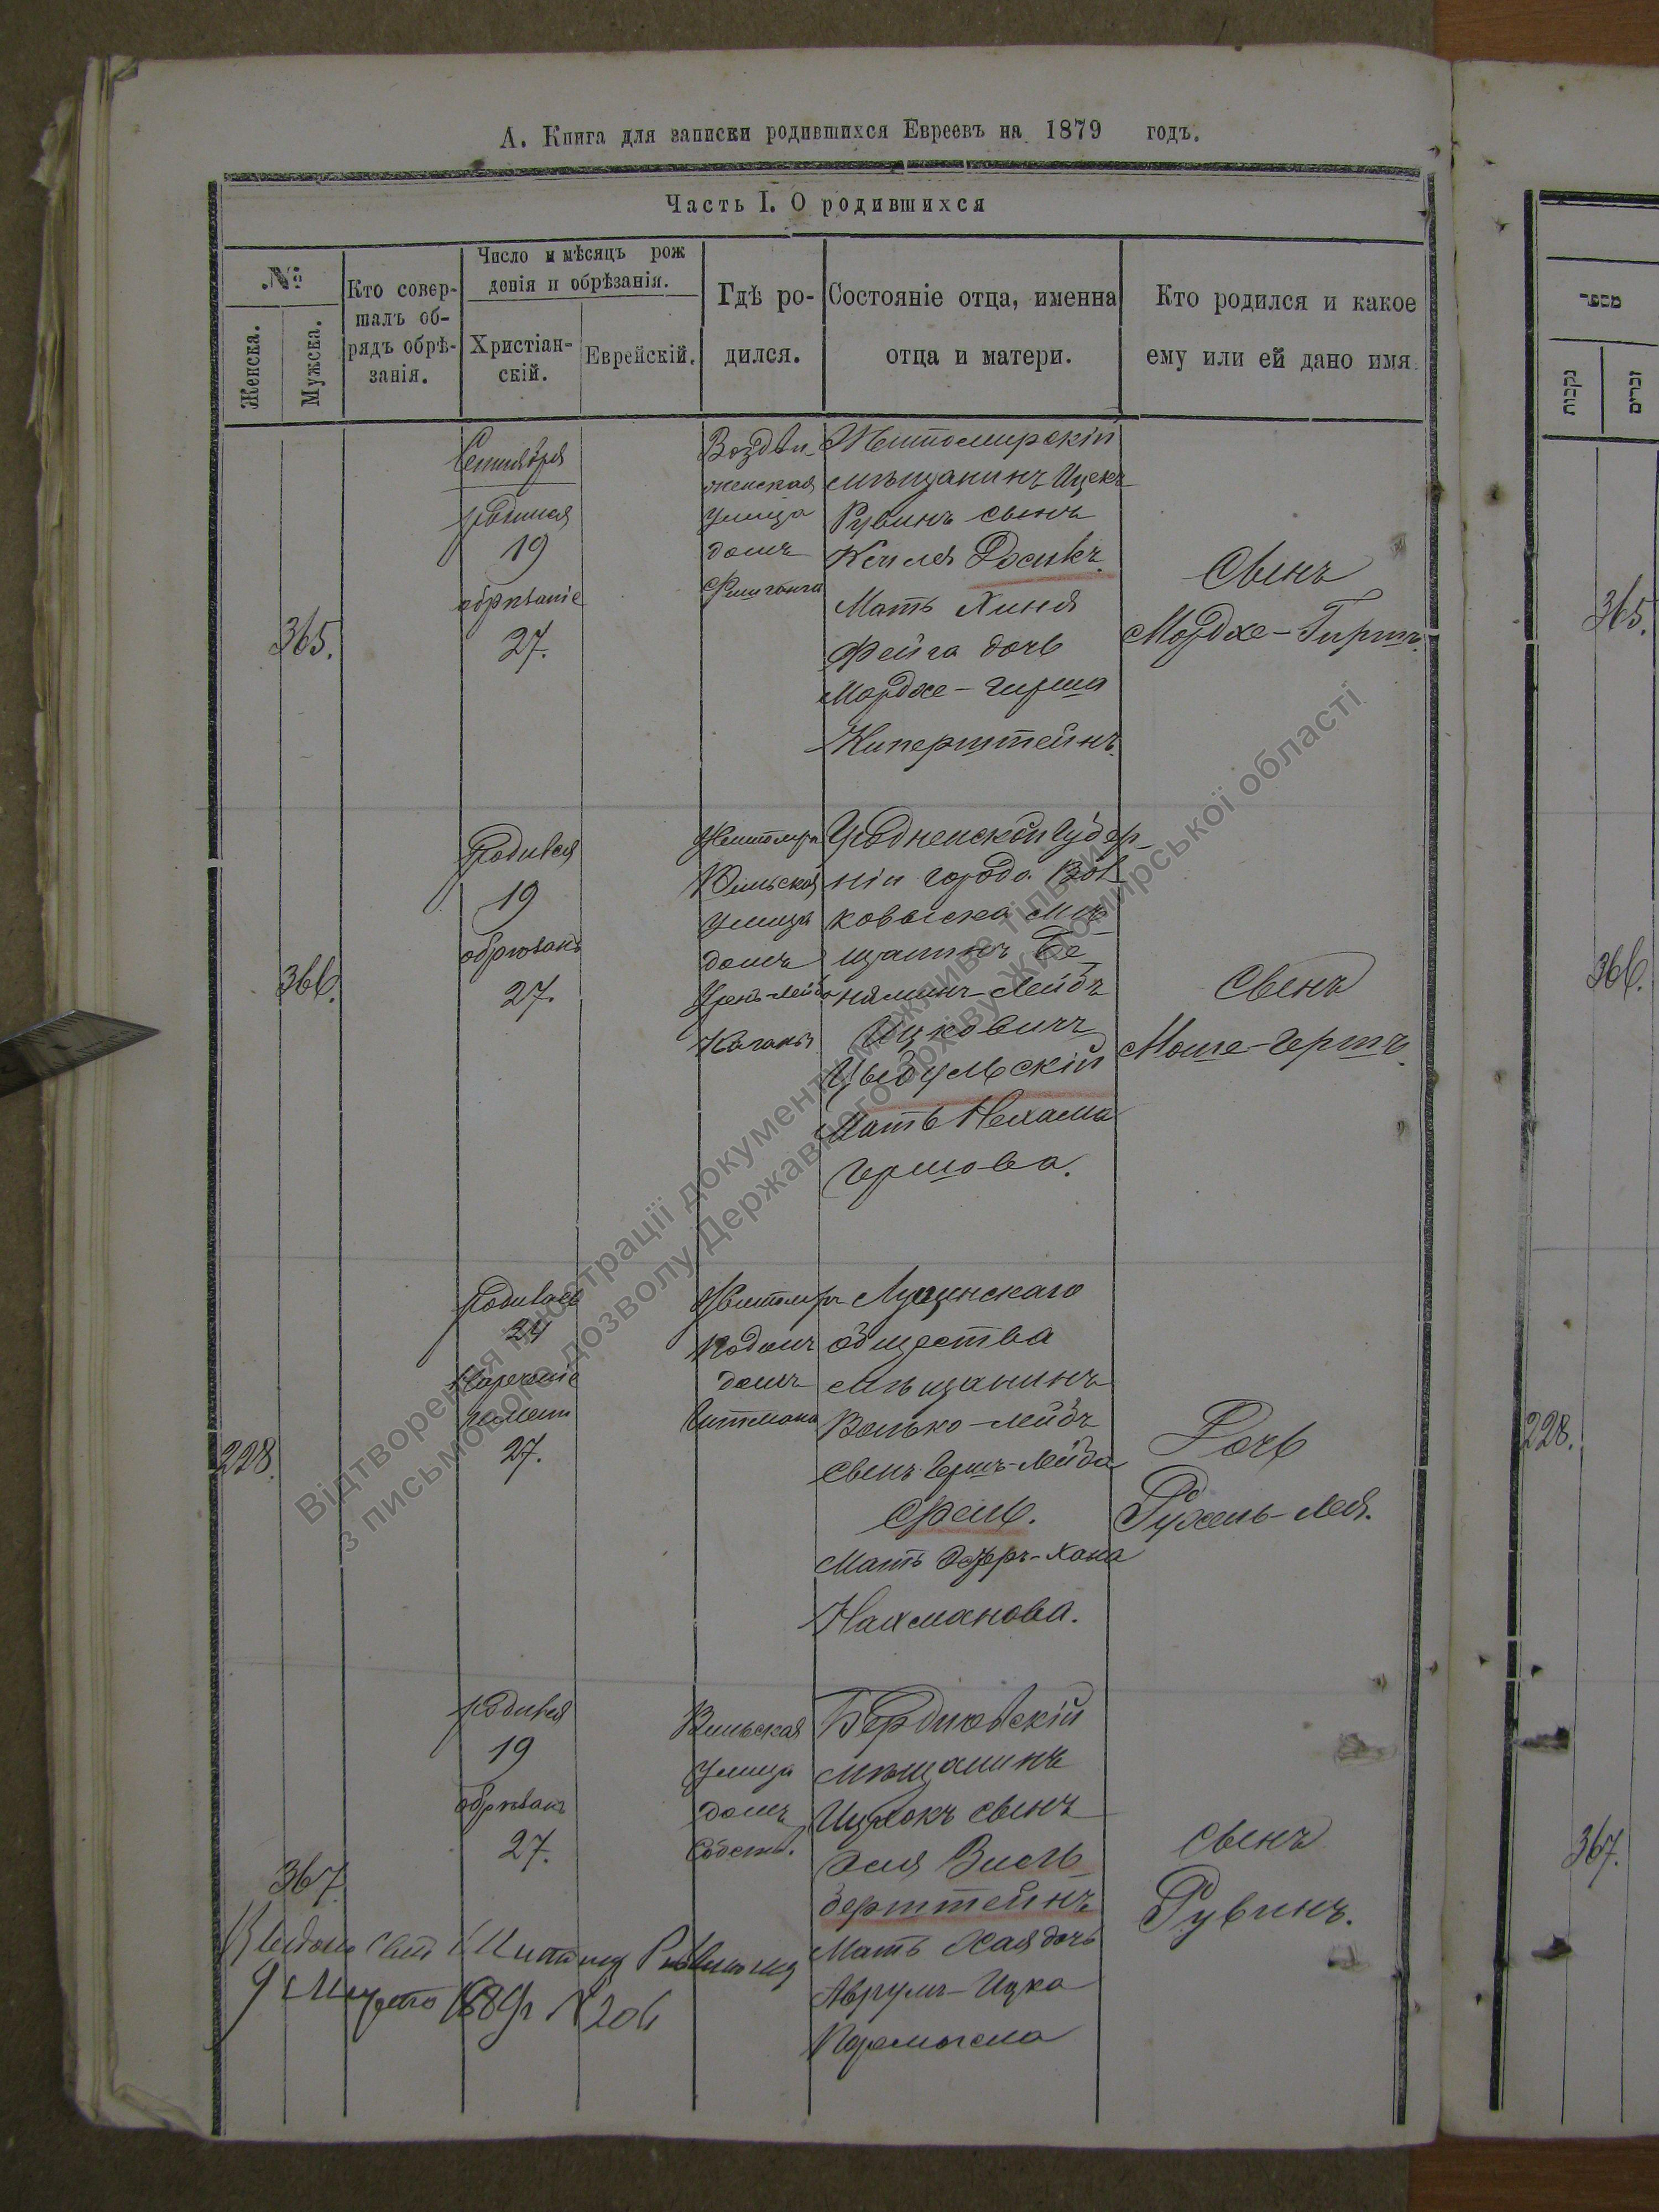 А. Книга для записки родившихся Евреевъ на 1879 годъ.
Часть I. О родившихся
№
Женска.
Мужска.
Кто совер-
шалъ об-
рядъ обрѣ-
занія.
Число и мѣсяцъ рож
денія и обрѣзанія.
Христіан-
скій.
Еврейскій.
Гдѣ ро-
дился.
Состояніе отца, именна
отца и матери.
Кто родился и какое
ему или ей дано имя.
365.
Сентября
родился
19
обрѣзаніе
27.
Воздви-
женская
улица
домъ
Житомирскій
мѣщанинъ Ицекъ
Рувинъ сынъ
Мать Хиня
Фейга дочь
Мордхе-Гирша
Киперштейнъ.
Сынъ
Мордхе-Гиршъ.
366.
Родився
19
обрѣзань
27.
Житомиръ
улица
домъ
Каганъ
Гродненской Губер-
ніи города Вол
ковыска мѣ-
щанинъ Бе-
няминъ-Лейбъ
Ицковичъ
Цыбульскій
Мать Нехама
Гершова.
Сынъ
Моше-Гершъ.
228.
Родилась
24
Нареченіе
имени
27.
Житомиръ
домъ
Гитмана
общества
мѣщанинъ
Волько-Лейбъ
сынъ Гершъ-Лейба
Мать Эстеръ-Хана
Нахманова.
Дочь
Рухель-Лея.
367.
родився
19
обрѣзань
27.
Вильская
улица
домъ
Собств.
Бердичовскій
мѣщанинъ
Ицхокъ сынъ
Эля Зиль
берштейнъ
Мать Хая дочь
Аврумъ-Ицка
Сынъ
Рувинъ.
9 Марта 1889г № 206
מספר
נקבות
זכרים
365.
366.
228.
367.
Відтворення ілюстрації документу можливе тільки
з письмового дозволу Державного архіву Житомирської області